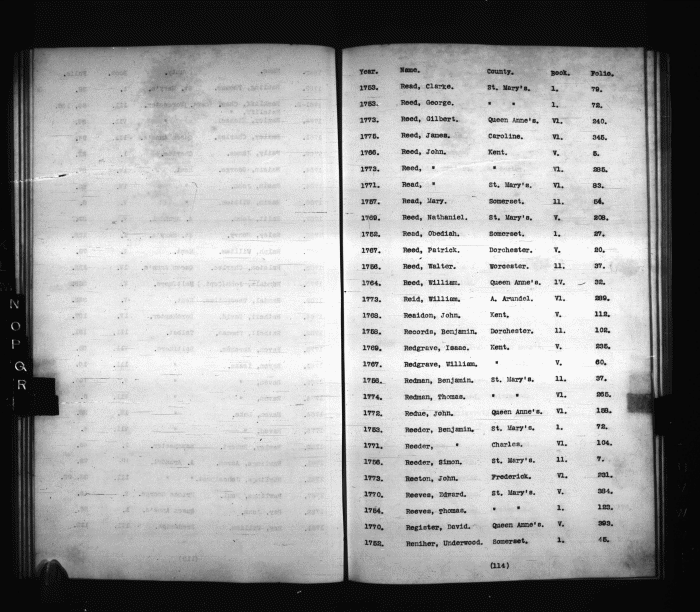 Year. Name. County. Book. Folio.
1753. Read, Clarke. St. Mary's. 1. 79.
1753. Reed, George. " " 1. 72.
1773. Reed, Gilbert. Queen Anne's. V1. 240.
1775. Reed, James. Caroline. V1. 345.
1766. Reed, John. Kent. V. 5.
1773. Reed, " " V1. 285.
1771. Read, " St. Mary's. V1. 83.
1757. Read, Mary. Somerset. 11. 54.
1769. Reed, Nathaniel. St. Mary's. V. 208.
1752. Read, Obediah. Somerset. 1. 27.
1767. Reed, Patrick. Dorchester. V. 20.
1756. Reed, Walter. Worcester. 11. 37.
1764. Reed, William. Queen Anne's. 1V. 32.
1773. Reid, William. A. Arundel. V1. 289.
1768. Reaidon, John. Kent. V. 112.
1758. Records, Benjamin. Dorchester. 11. 102.
1769. Redgrave, Isaac. Kent. V. 235.
1767. Redgrave, William. " V. 60.
1756. Redman, Benjamin. St. Mary's. 11. 37.
1774. Redman, Thomas. " " V1. 265.
1772. Redue, John. Queen Anne's. V1. 158.
1753. Reeder, Benjamin. St. Mary's. 1. 72.
1771. Reeder, " Charles. V1. 104.
1756. Reeder, Simon. St. Mary's. 11. 7.
1773. Reeton, John. Frederick. V1. 231.
1770. Reeves, Edward. St. Mary's. V. 384.
1754. Reeves, Thomas. " " 1. 123.
1770. Register, David. Queen Anne's. V. 393.
1752. Reniher, Underwood. Somerset. 1. 45.
(114)
N
O
P
Q
R